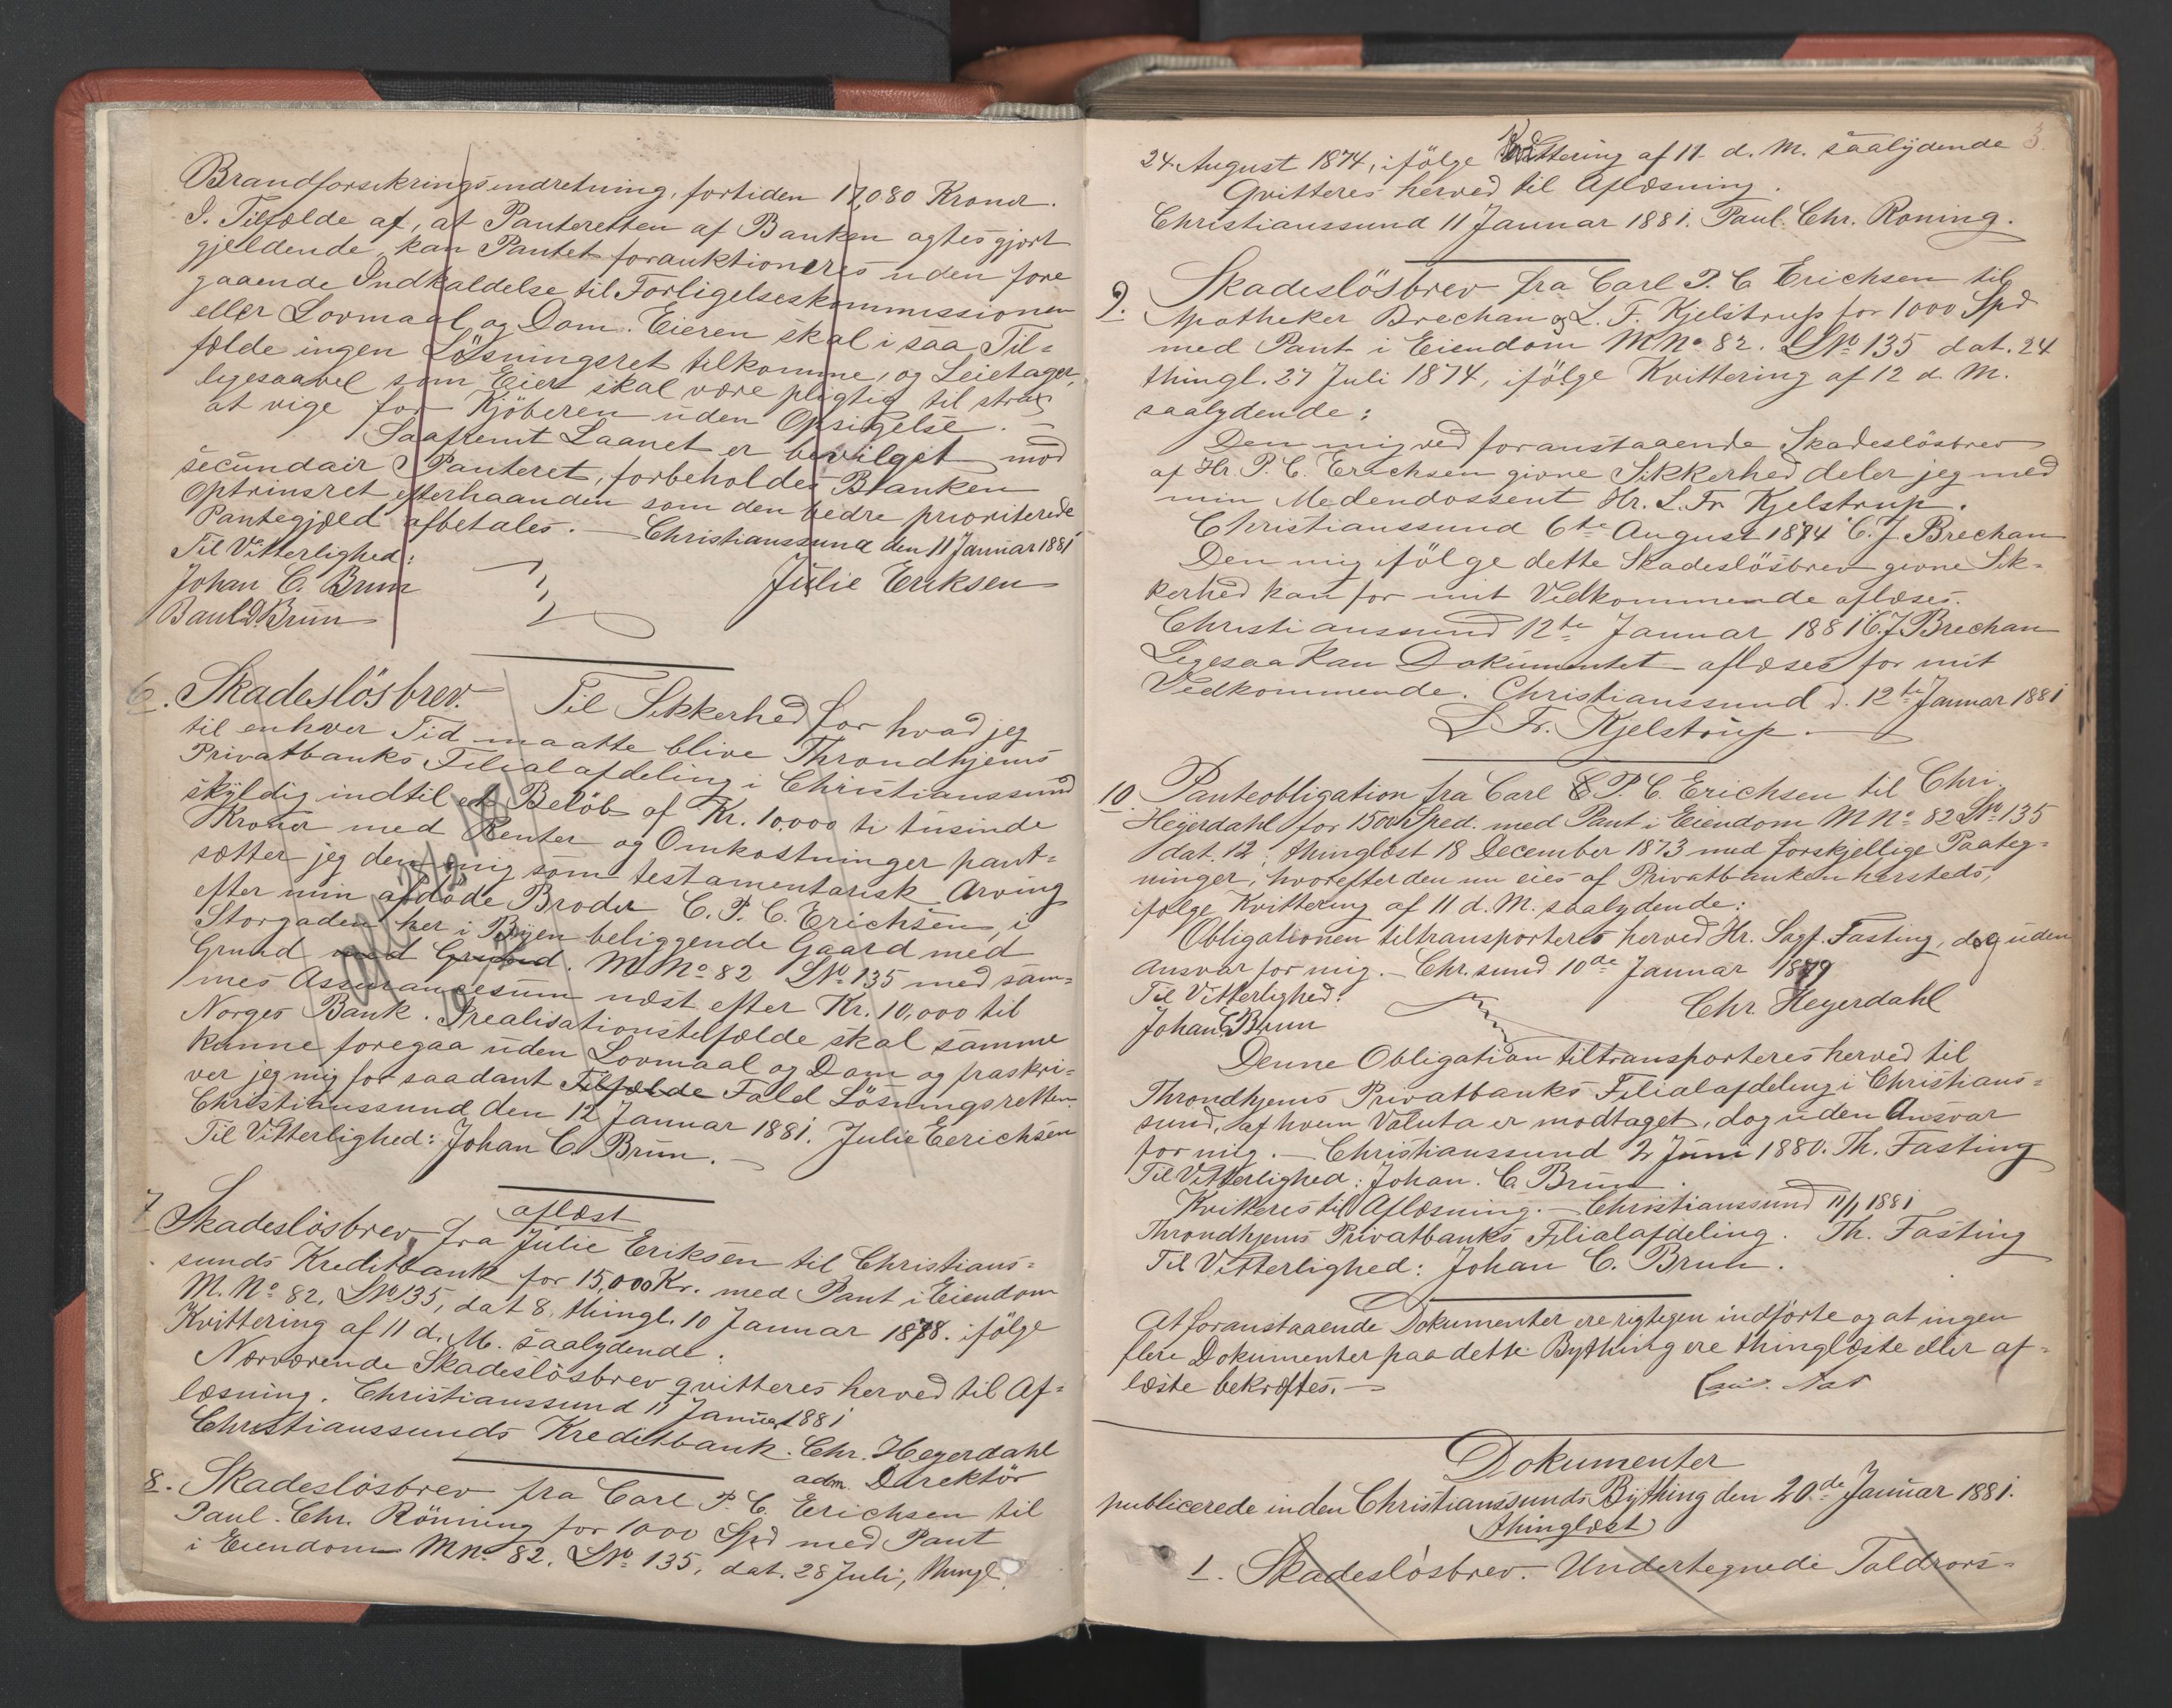 Brandforsikringsindretning, fortiden 17,080 Kroner.
I. Tilfælde af, at Panteretten af Banken agtes gjort
gjeldende, kan Pantet forauktioneres uden fore
gaaende Indkaldelse til Forligelseskommissionen
eller Lovmaal og Dom. Eieren skal i saa Til=
fælde ingen Lösningsret tilkomme, og Leietager,
ligesaavel som Eier skal være pligtig til strax
at vige for Kjöberen uden Opsigelse. —
Saafremt Laanet er bevilget mod
secundair Panteret, forbeholdes Banken
Optrinsret efterhaanden som den bedre prioriterede
Pantegjæld afbetales. — Christianssund den 11 Januar 1881
Til Vitterlighed: Julie Eriksen
Johan C. Brun
Paul D. Brun
6. Skadeslösbrev. Til Sikkerhed for hvad jeg
til enhver Tid maatte blive Throndhjems
Privatbanks Filialafdeling i Christianssund
skyldig indtil et Belöb af Kr. 10,000 ti tusinde
Kroner med Renter og Omkostninger pant=
sætter jeg den mig som testamentarisk Arving
efter min afdöde Broder C. P. C. Erichsen, i
Storgaden her i Byen beliggende Gaard med
Grund med Grund. M No 82 LNo 135 med sam=
mes Assurancesum næst efter Kr. 10,000 til
Norges Bank. I realisationstilfælde skal samme
kunne foregaa uden Lovmaal og Dom og fraskri=
ver jeg mig for saadant Tilfælde Fald Lösningsretten.
Christianssund den 12 Januar 1881. Julie Eerichsen
Til Vitterlighed: Johan C. Brun. —
aflæst
7. Skadeslösbrev fra Julie Eriksen til Christians=
sunds Kreditbank for 15,000 Kr. med Pant i Eiendom
M. No 82, LNo 135, dat 8, thingl. 10 Januar 1878. ifölge
Kvittering af 11 d. M. saalydende:
Nærværende Skadeslösbrev qvitteres herved til Af=
læsning. Christianssund 11 Januar 1881
Christianssunds Kreditbank. Chr. Heyerdahl
adm. Direktör
8. Skadeslösbrev fra Carl P. C. Erichsen til
Paul. Chr. Rönning for 1000 Spd med Pant
i Eiendom MNo 82. LNo 135, dat. 28 Juli, thingl.
3.
24 August 1874, ifölge Kvittering af 11 d. M. saalydende
Qvitteres herved til Aflæsning.
Christianssund 11 Januar 1881. Paul. Chr. Roning.
9. Skadeslösbrev fra Carl P. C Erichsen til
Apotheker Brechan og L. F. Kjelstrup for 1000 Spd
med Pant i Eiendom MNo 82. LNo 135 dat. 24
thingl. 27 Juli 1874, ifölge Kvittering af 12 d. M.
saalydende:
Den mig ved foranstaaende Skadeslösbrev
af Hr. P. C. Erichsen givne Sikkerhed deler jeg med
min Medendossent Hr. L. Fr Kjelstrup.
Christianssund 6te August 1874 C. J Brechan
Den mig ifölge dette Skadeslösbrev givne Sik=
kerhed kan for mit Vedkommende aflæses.
Christianssund 12te Januar 1881 C. J Brechan
Ligesaa kan Dokumentet aflæses for mit
Vedkommende. Christianssund d. 12te Januar 1881
L Fr. Kjelstrup. —
10. Panteobligation fra Carl P. C. Erichsen til Chr.
Heyerdahl for 1500 Sped. med Pant i Eiendom M No 82 LNo 135
dat. 12, thinglæst 18 December 1873 med forskjellige Paateg=
ninger, hvorefter den nu eies af Privatbanken hersteds,
ifölge Kvittering af 11 d. M. saalydende:
Obligationen tiltransporteres herved Hr. Sagf. Fasting, dog uden
Ansvar for mig. — Chr.sund 10de Januar 1879
Til Vitterlighed: Chr. Heyerdahl
Johan C Brun
Denne Obligation tiltransporteres herved til
Throndhjems Privatbanks Filialafdeling i Christians=
sund, af hvem Valuta er modtaget, dog uden Ansvar
for mig. — Christianssund 2 Juni 1880. Th. Fasting
Til Vitterlighed: Johan. C. Brun.
Kvitteres til Aflæsning. — Christianssund 11/1 1881
Throndhjems Privatbanks Filialafdeling. Th. Fasting
Til Vitterlighed: Johan C. Brun.
At foranstaaende Dokumenter ere rigtigen indförte og at ingen
flere Dokumenter paa dette Bything ere thinglæste eller af=
læste bekræftes. —
Dokumenter
publicerede inden Christianssunds Bything den 20de Januar 1881.
thinglæst
1. Skadeslösbrev. Undertegnede Toldrors=